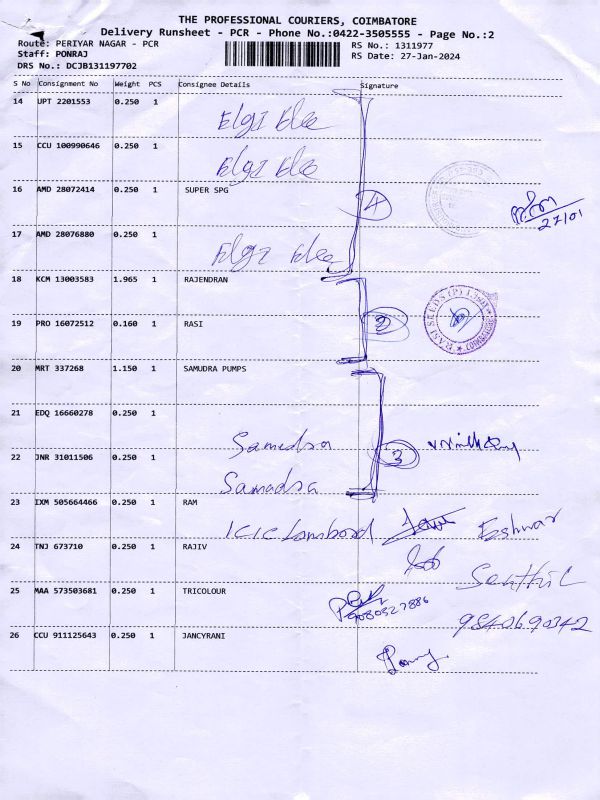 THE PROFESSIONAL COURIERS, COIMBATORE
Delivery Runsheet - PCR - Phone No.:0422-3505555 - Page No.:2
Route: PERIYAR NAGAR - PCR
RS No.: 1311977
Staff: PONRAJ
RS Date: 27-Jan-2024
DRS No.: DCJB131197702
S No Consignment No Weight PCS Consignee Details Signature
14 UPT 2201553 0.250 1 Elgi Elec
15 CCU 100990646 0.250 1 Elgi Elec
16 AMD 28072414 0.250 1 SUPER SPG 4
27/01
17 AMD 28076880 0.250 1 Elgi Elec
18 KCM 13003583 1.965 1 RAJENDRAN
19 PRO 16072512 0.160 1 RASI 2 RASI SEEDS (P) LTD. COIMBATORE
20 MRT 337268 1.150 1 SAMUDRA PUMPS
21 EDQ 16660278 0.250 1 Samudra
22 JNR 31011506 0.250 1 Samadra 3
23 IXM 505664466 0.250 1 RAM ICIC Lombord Eshwar
24 TNJ 673710 0.250 1 RAJIV Senthil
25 MAA 573503681 0.250 1 TRICOLOUR 9080327886
9840690342
26 CCU 911125643 0.250 1 JANCYRANI